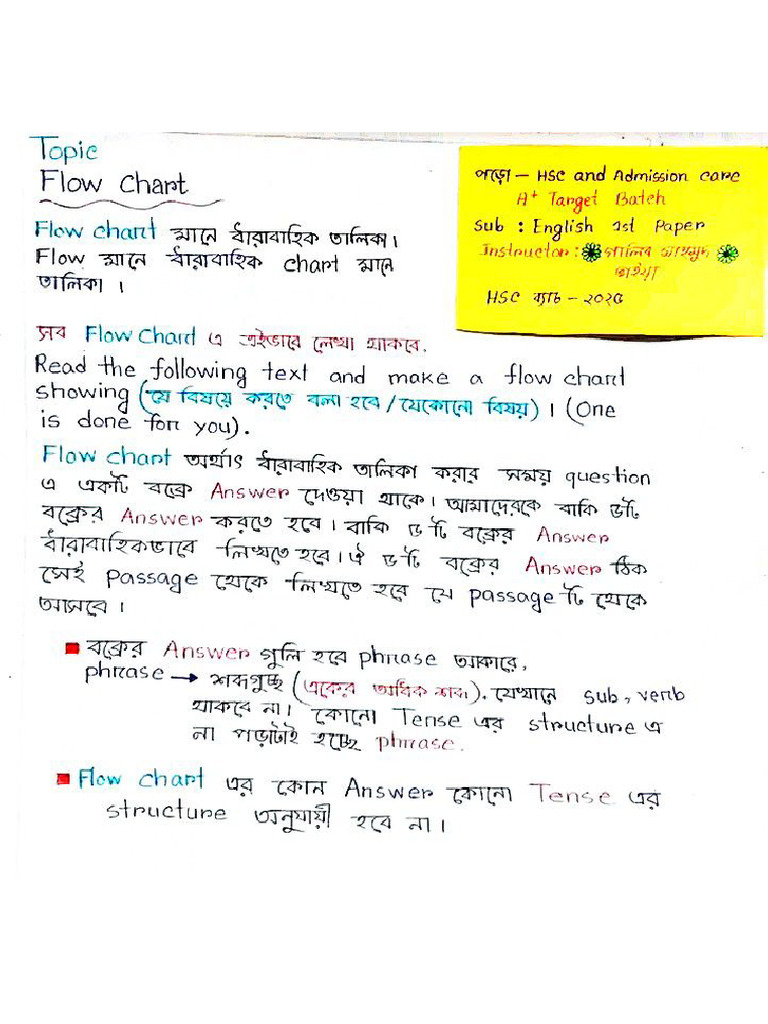 Topic
Flow Chart
Flow chart মানে ধাঁরাবাহিক তালিকা।
Flow মানে ধাঁরাবাহিক chart মানে
তালিকা ।
পড়ো - HSC and Admission care
A+ Target Batch
Sub : English 1st Paper
Instructor : গালিব মাহমুদ
ভাইয়া
HSC ব্যাচ - ২০২৫
সব Flow Chard এ এইভাবে লেখা থাকবে.
Read the following text and make a flow chart
showing (যে বিষয়ে করতে বলা হবে / যেকোনো বিষয়) । (One
is done for you).
Flow chart অর্থাৎ ধাঁরাবাহিক তালিকা করার সময় question
এ একটি বক্সে Answer দেওয়া থাকে। আমাদেরকে বাকি ৫টি
বক্সের Answer করতে হবে। বাকি ৫ টি বক্সের Answer
ধাঁরাবাহিকভাবে লিখতে হবে। ঐ ৫ টি বক্সের Answer ঠিক
সেই passage থেকে লিখতে হবে যে passage টি থেকে
আসবে ।
বক্সের Answer গুলি হবে phrase আকারে,
phrase → শব্দগুচ্ছ (একের অধিক শব্দ). যেখানে sub, verb
থাকবে না। কোনো Tense এর structure এ
না পড়াটাই হচ্ছে phrase.
Flow chart এর কোন Answer কোনো Tense এর
structure অনুযায়ী হবে না।